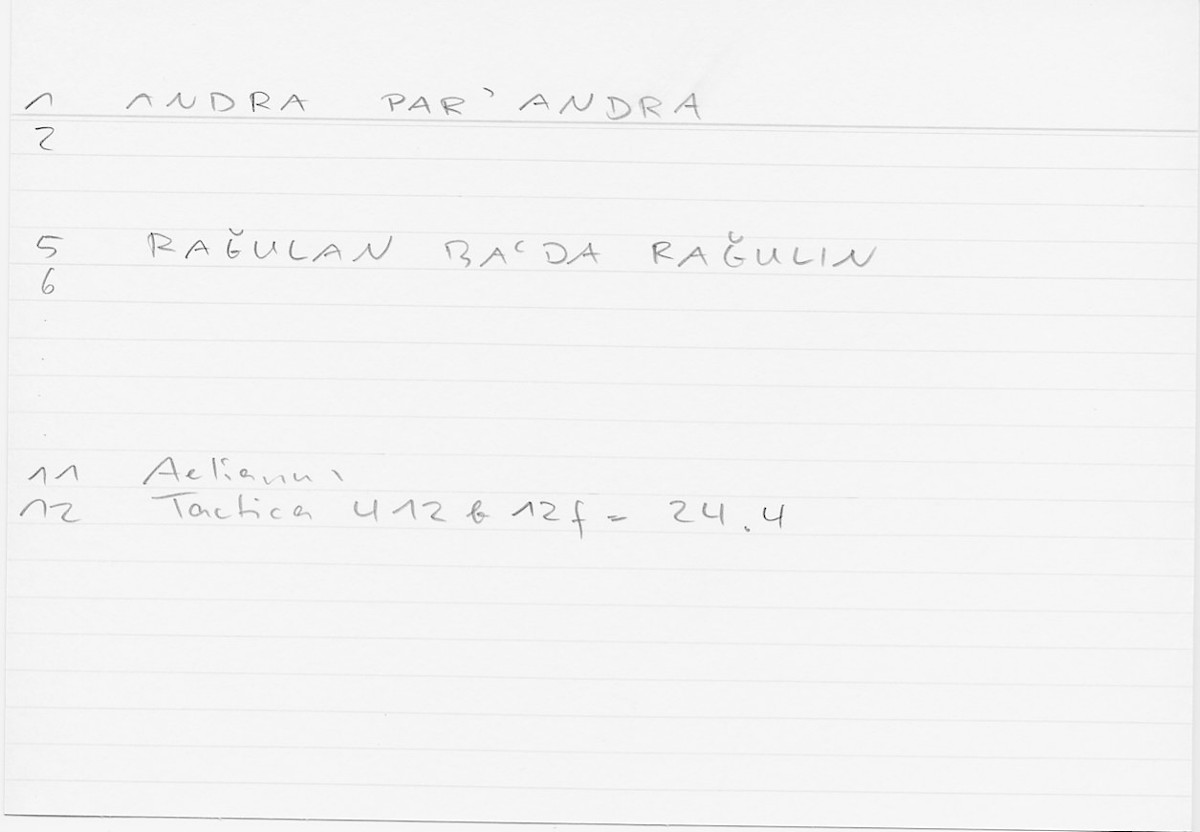 1 ANDRA PAR' ANDRA
2
5 RAĞULAN BAʿDA RAĞULIN
6
11 Aelianus
12 Tactica 412 b 12f = 24.4